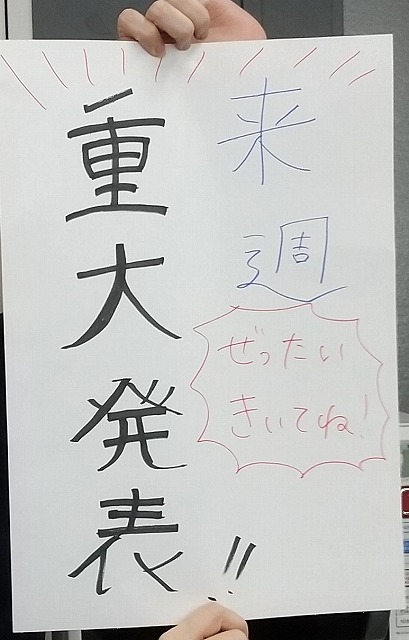 来週
ぜったい
きいてね!
重大発表!!